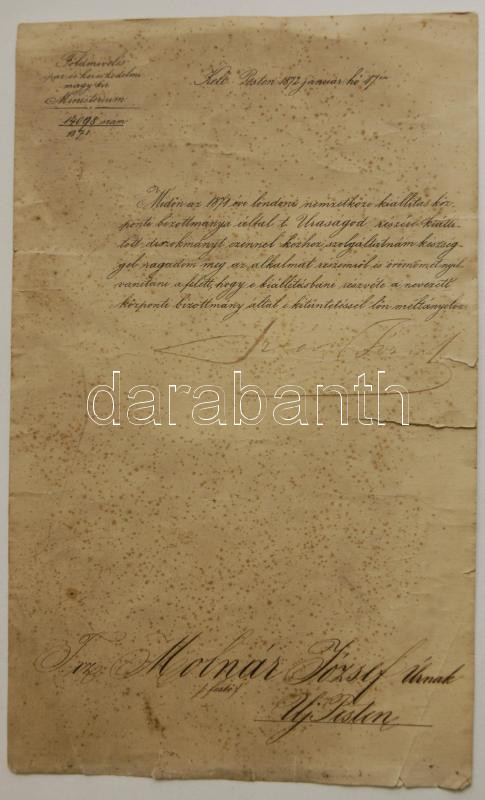 Földmivelés
ipar és kereskedelmi
magy. kir.
Ministerium
14098 szám
1871
Kelt Pesten 1872 január hó 17én
Midőn az 1871 évi londoni nemzetközi kiállitás köz-
ponti bizottmánya által t. Uraságod részére kiálli-
tott diszokmányt ezennel kézhez szolgáltatnám készség-
gel ragadom meg az alkalmat részemről is örömömet nyil-
vánitani a felett, hogy e kiállitásbani részvéte a nevezett
központi bizottmány által e kitüntetéssel lön méltányolva
darabanth
Molnár József Úrnak
festő
Uj Pesten